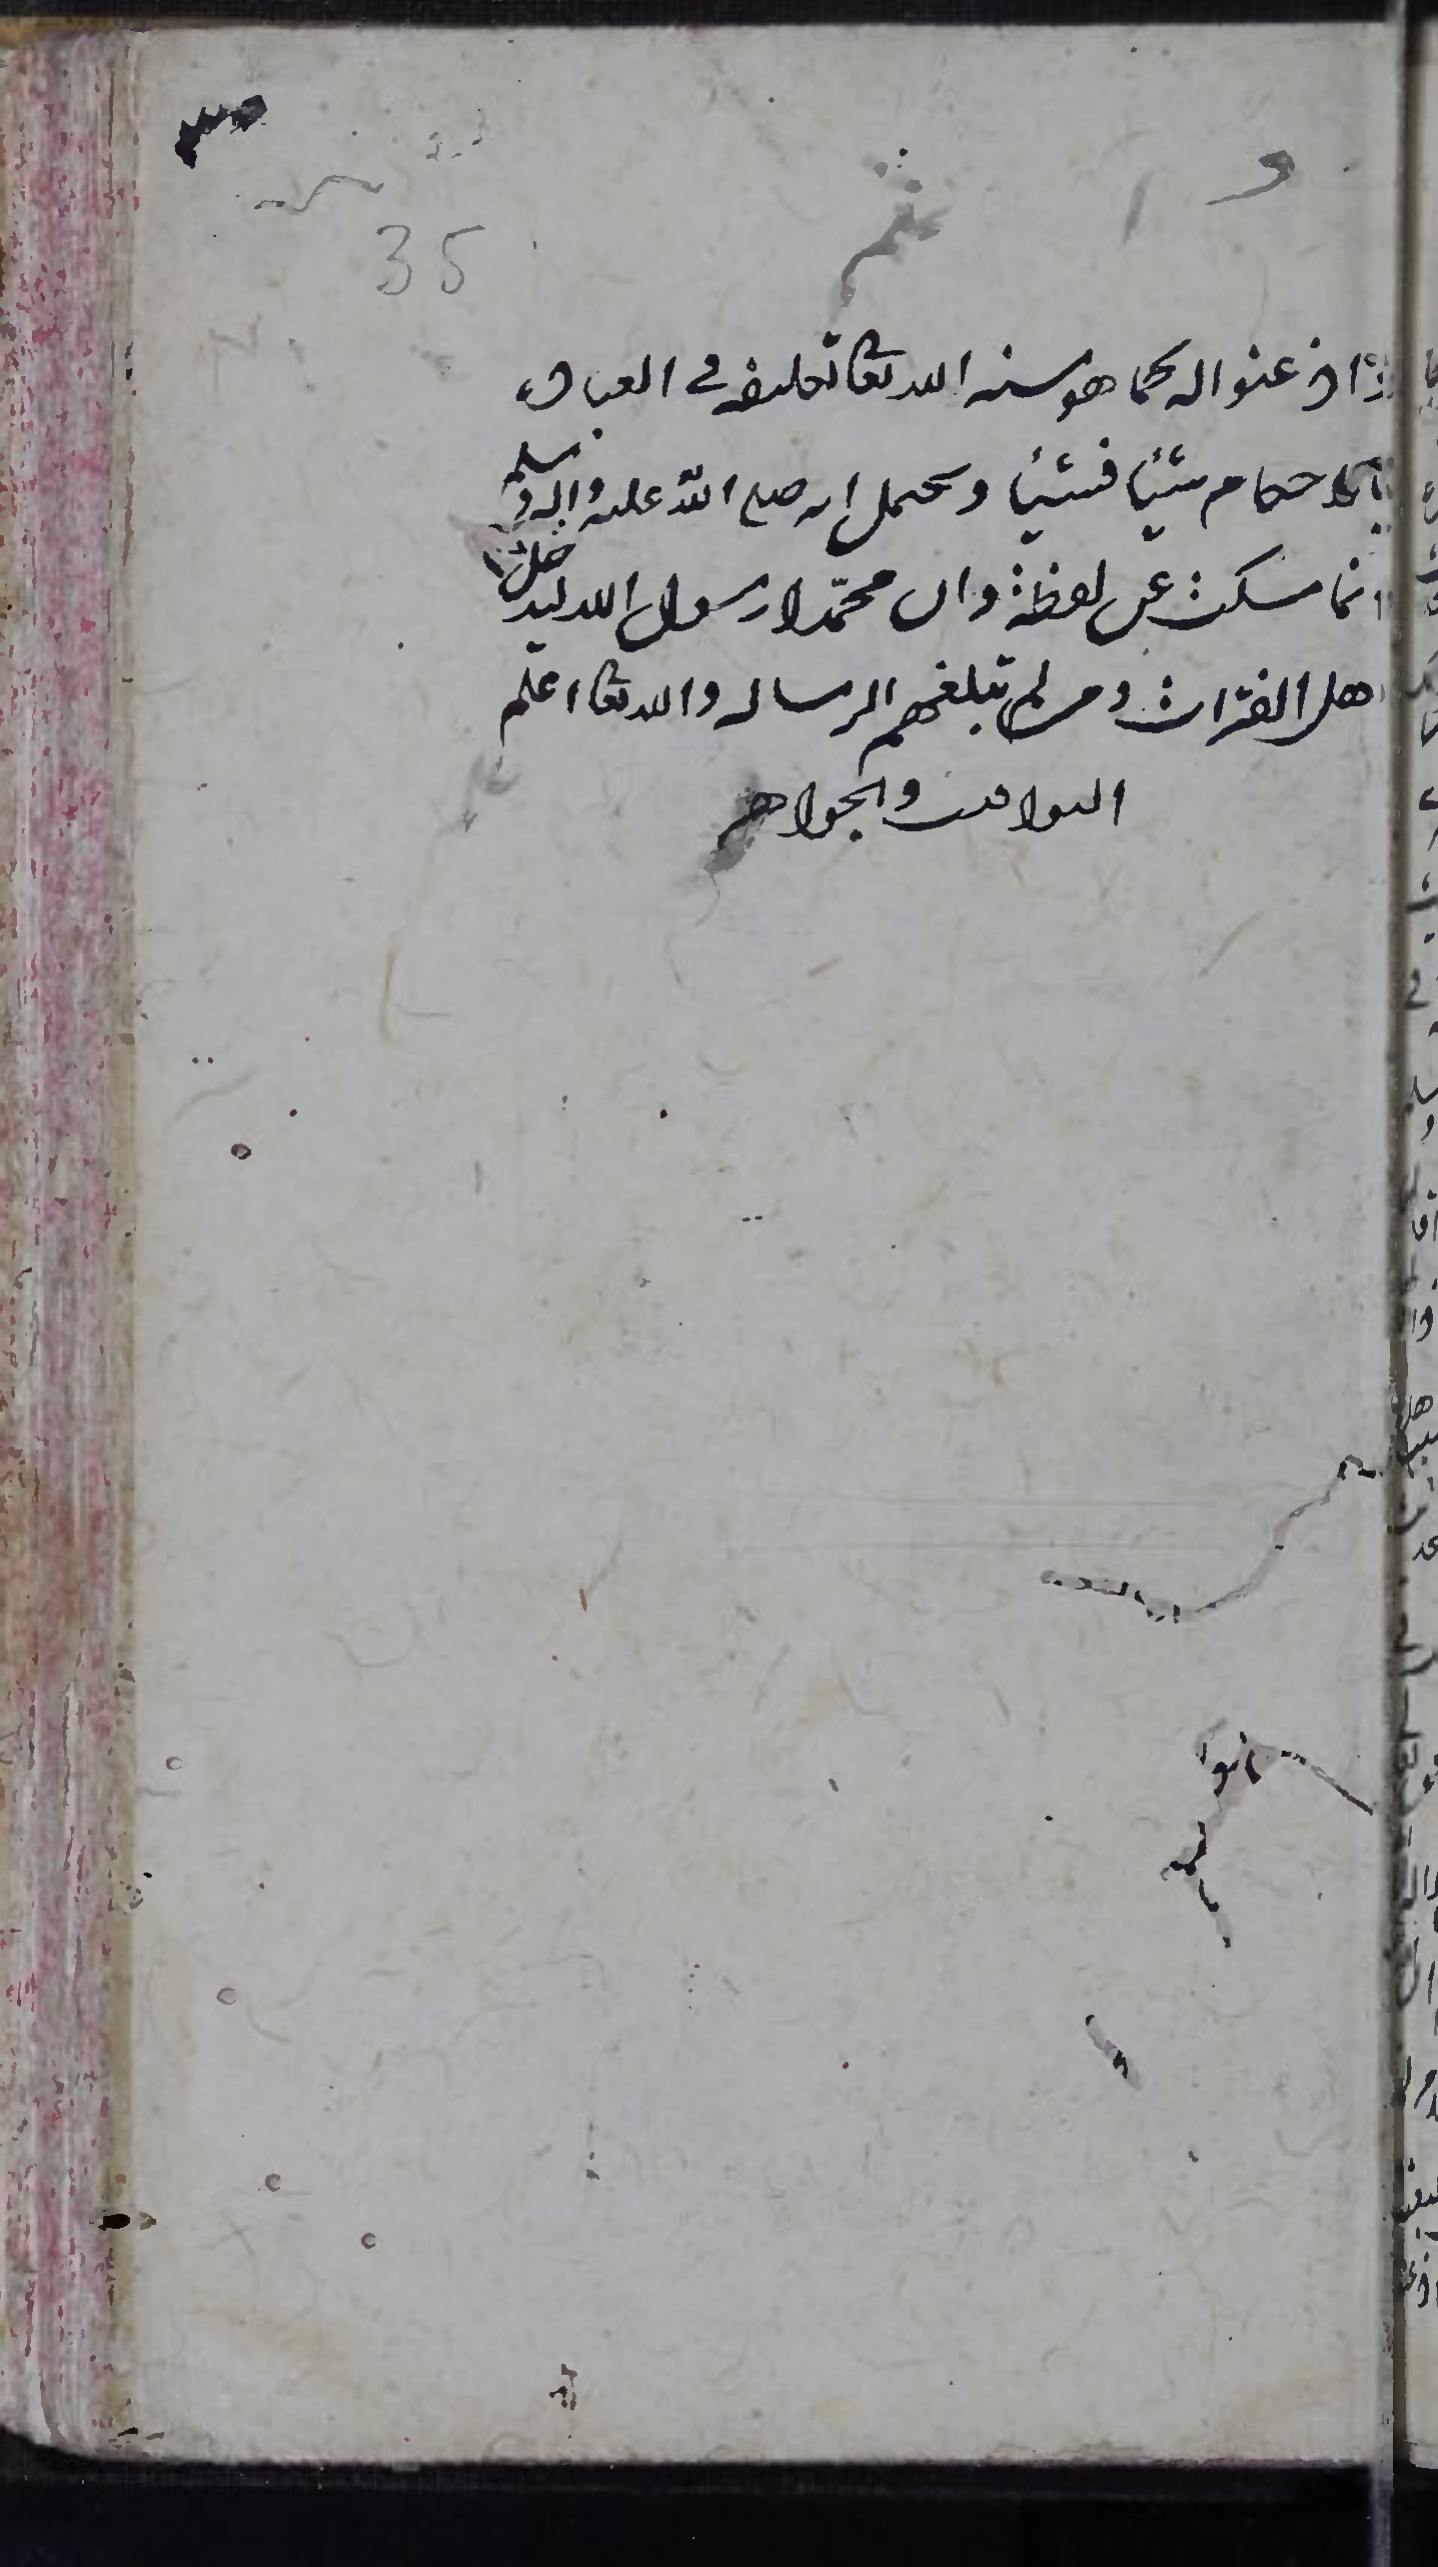 ٣٥
35
اذا اذعنوا له كما هو سنه الله تعا تعليفه في العباد
بالاحكام شيئا فشيئا ويحتمل انه صلى الله عليه واله وسلم
انما سكت عن لفظة وان محمدا رسول الله ليدخل
اهل الفترات ومن لم تبلغهم الرساله والله تعا اعلم
اليواقيت والجواهر